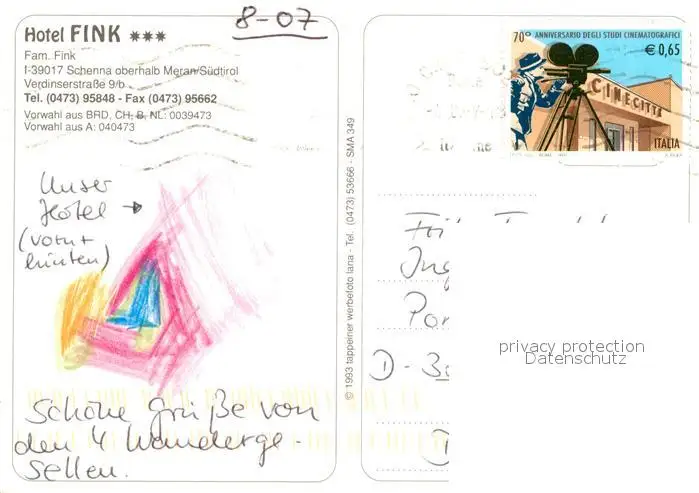 8-07
Hotel FINK ***
Fam. Fink
I-39017 Schenna oberhalb Meran/Südtirol
Verdinserstraße 9/b
Tel. (0473) 95848 - Fax (0473) 95662
Vorwahl aus BRD, CH, B, NL: 0039473
Vorwahl aus A: 040473
Unser
Hotel →
(vorn +
hinten)
Schöne Grüße von
den 4 Wanderge-
sellen.
© 1993 tappeiner werbefoto lana - Tel. (0473) 53666 - SMA 349
70° ANNIVERSARIO DEGLI STUDI CINEMATOGRAFICI
€ 0,65
CINECITTÀ
ITALIA
Ing
D - 3
privacy protection
Datenschutz